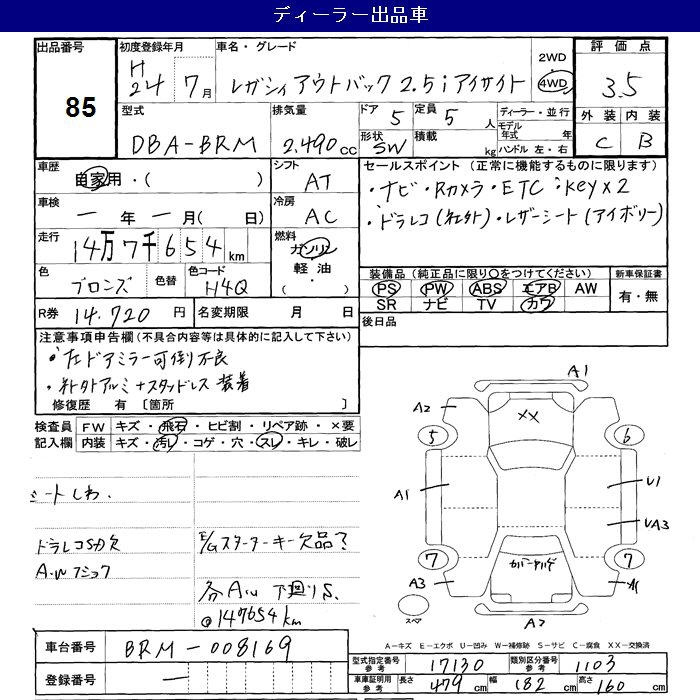 ディーラー出品車
出品番号 85
初度登録年月 H24年 7月
車名・グレード レガシィアウトバック 2.5i アイサイト
2WD 4WD
評価点 3.5
型式 DBA-BRM
排気量 2.490cc
ドア 5 定員 5人
形状 SW 積載 kg
ディーラー・並行
モデル年式 年
ハンドル 左・右
外装 内装
C B
車歴 自家用・( )
シフト AT
セールスポイント(正常に機能するものに限ります)
・ナビ・Rカメラ・ETC・key×2
・ドラレコ(社外)・レザーシート(アイボリー)
車検 ー年ー月(日)
冷房 AC
走行 14万7千654km
燃料 ガソリン 軽油・( )
色 ブロンズ 色替 色コード H4Q
装備品(純正品に限り○をつけてください) 新車保証書
PS PW ABS エアB AW 有・無
SR ナビ TV カワ
R券 14.720円 名変期限 月 日
後日品
注意事項申告欄(不具合内容等は具体的に記入して下さい)
・左ドアミラー可倒不良
・社外アルミ+スタッドレス装着
修復歴 有〔箇所 〕
検査員記入欄
FW キズ・飛石・ヒビ割・リペア跡・×要
内装 キズ・汚レ・コゲ・穴・スレ・キレ・破レ
シートしわ.
ドラレコSD欠
E/Gスターターキー欠品?
A.W
各AW 下廻りS.
@147654km
A1
A2
XX
5
6
A1
U1
UA3
7
7
A3
A1
スペア
A2
A-キズ E-エクボ U-凹み W-補修跡 S-サビ C-腐食 XX-交換済
車台番号 BRM-008169
登録番号 ー
型式指定番号 参考 17130
類別区分番号 参考 1103
車庫証明用 参考 長さ 479cm 幅 182cm 高さ 160cm